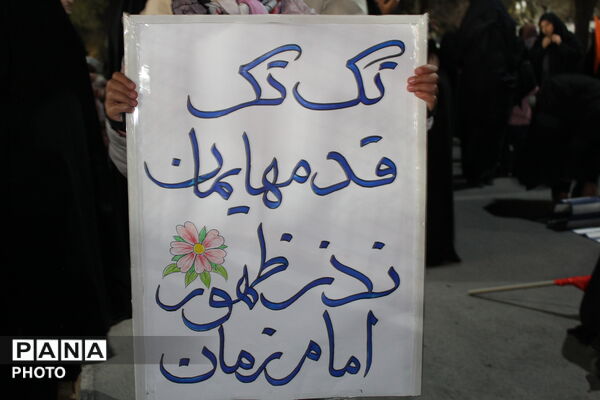 تک تک
قدمهایمان
نذر ظهور
امام زمان
PANA
PHOTO